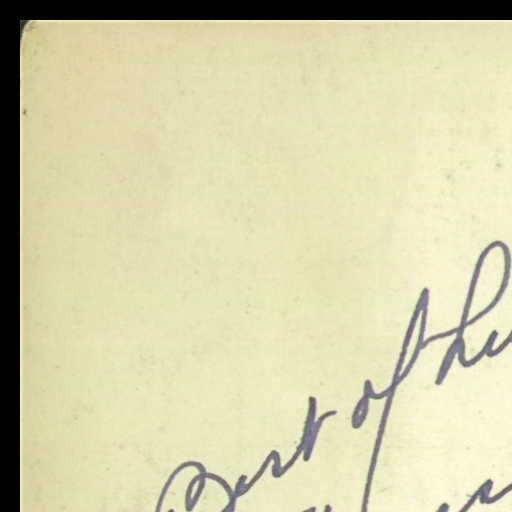 Best of Lu